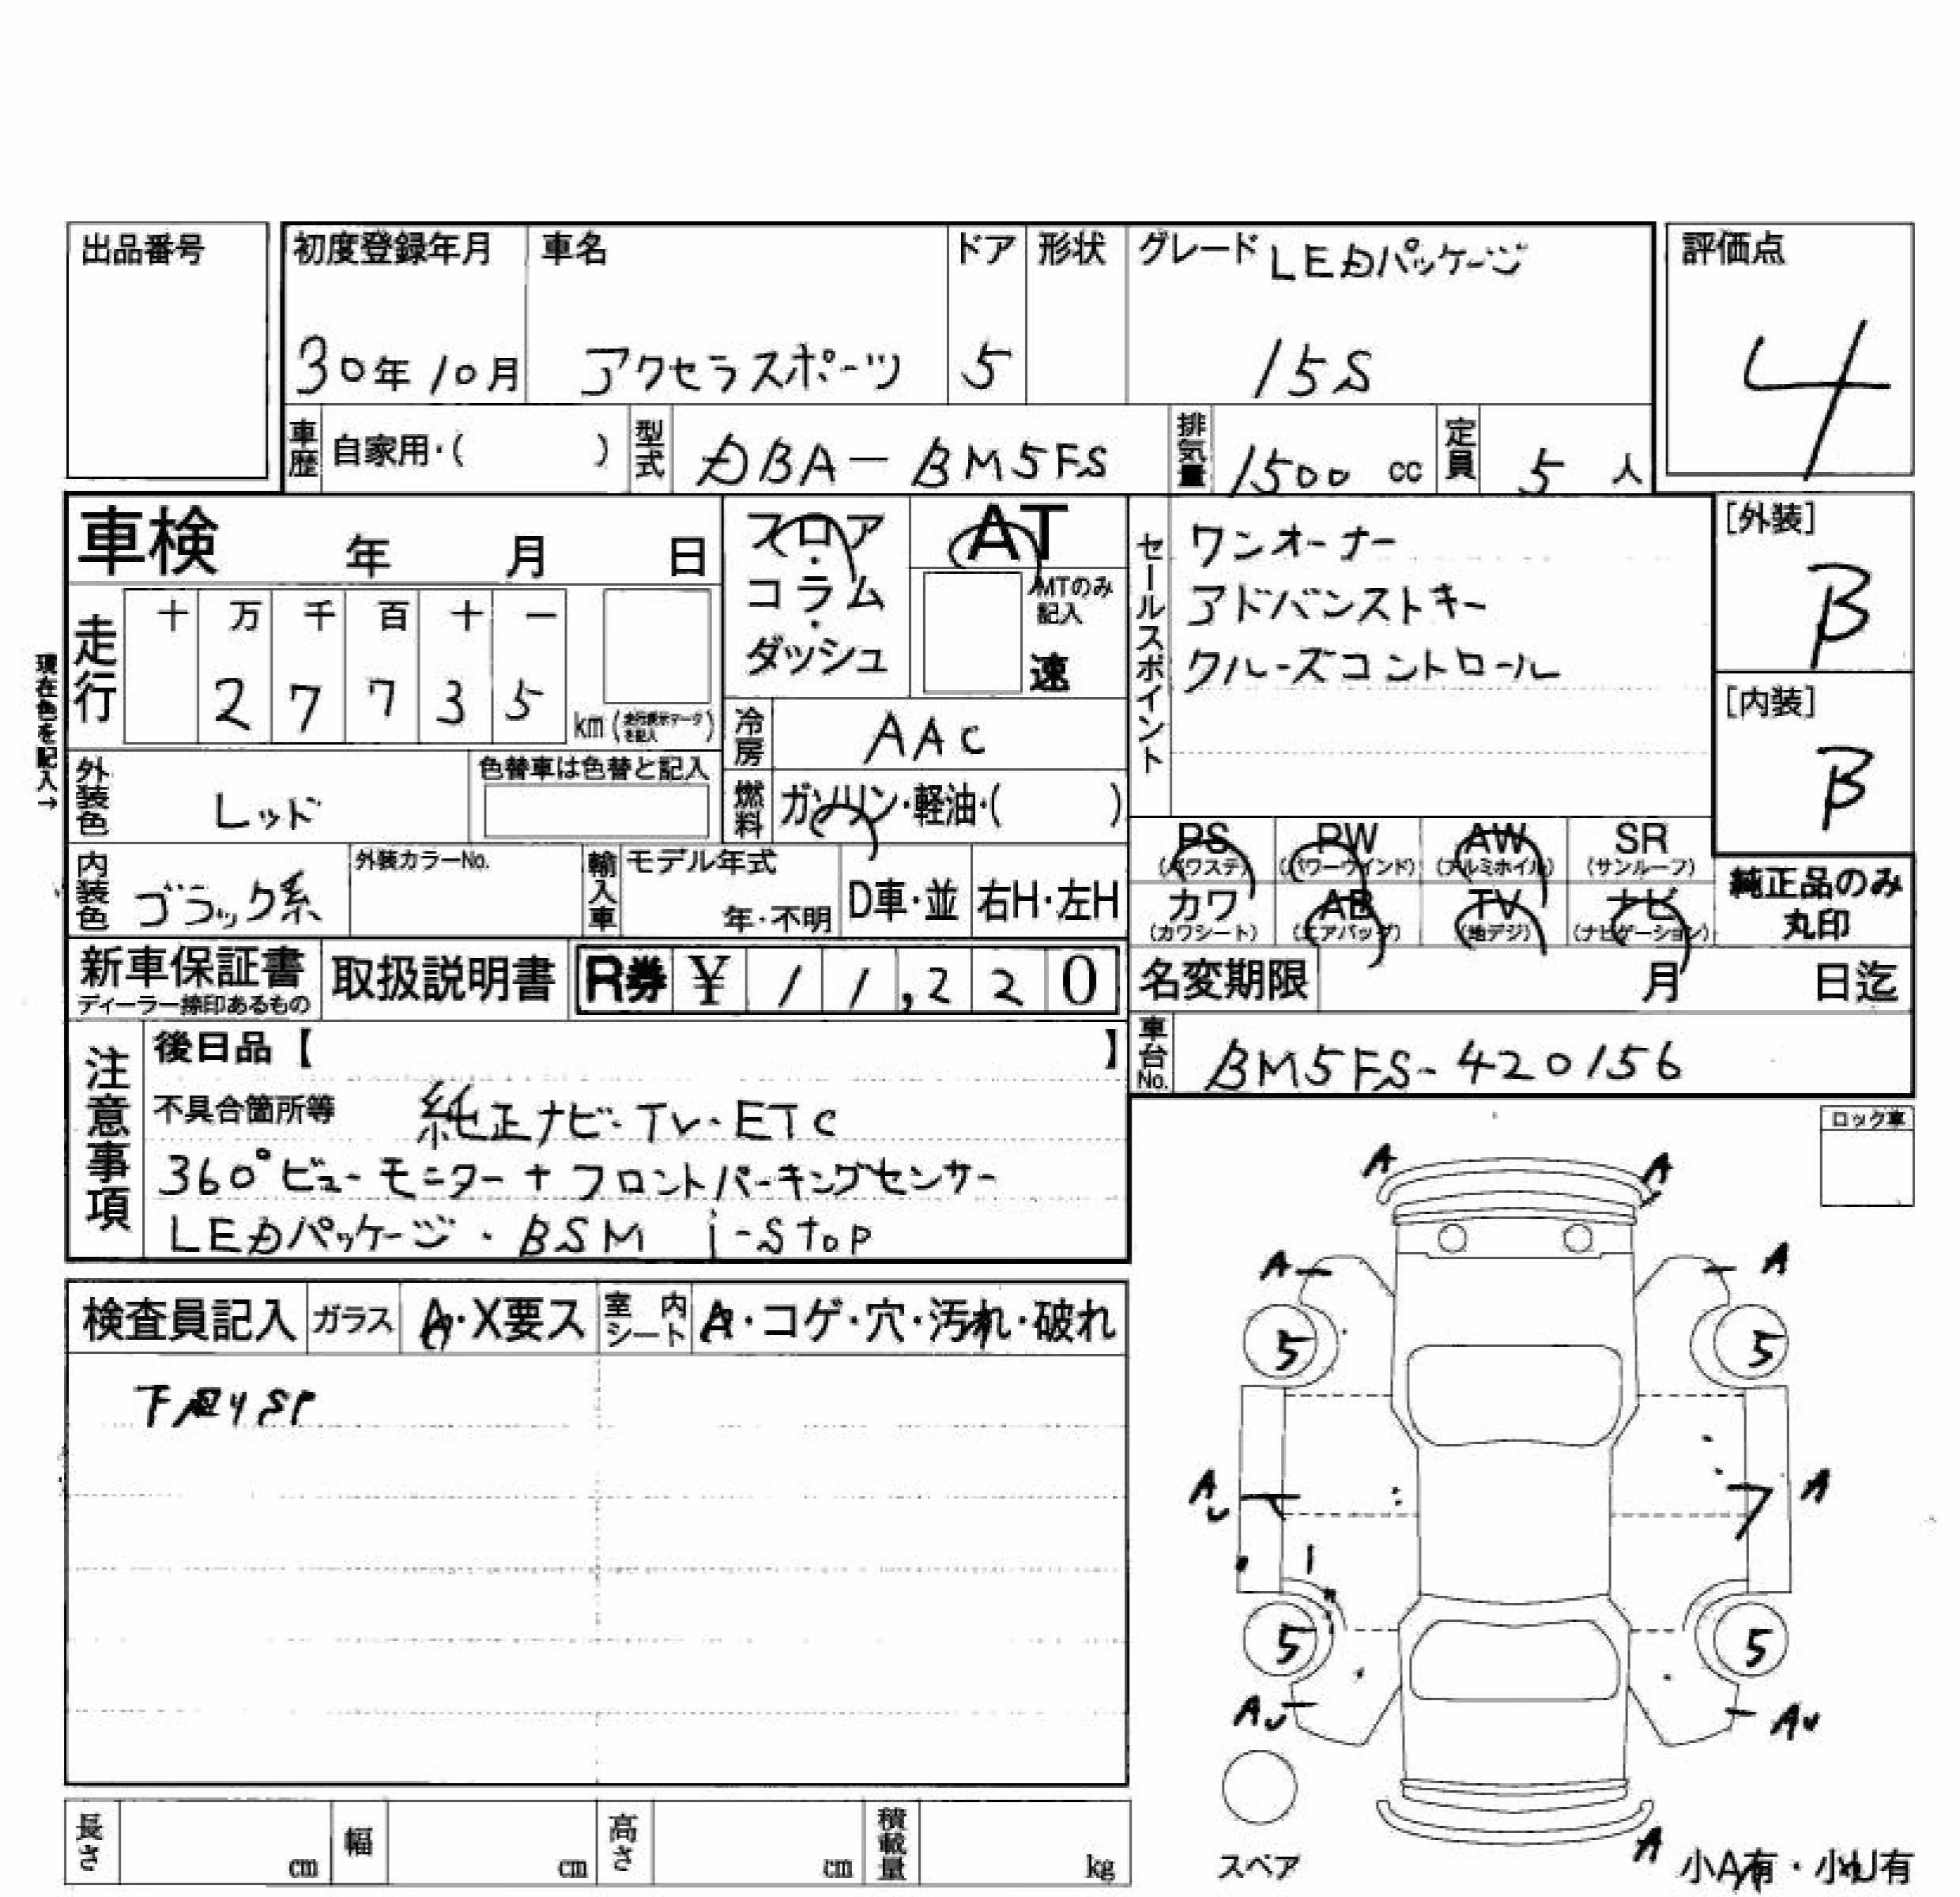 出品番号
初度登録年月 車名 ドア 形状 グレード LEDパッケージ 評価点
30年10月 アクセラスポーツ 5 15S 4
車歴 自家用・( ) 型式 DBA-BM5FS 排気量 1500 cc 定員 5 人
車検 年 月 日
フロア・コラム・ダッシュ
AT
MTのみ記入
速
セールスポイント
ワンオーナー
アドバンストキー
クルーズコントロール
[外装]
B
[内装]
B
現在色を記入→
走行 十 万 千 百 十 一
2 7 7 3 5
km (走行表示データを記入)
冷房 AAC
外装色 レッド
色替車は色替と記入
燃料 ガソリン・軽油・( )
内装色 ブラック系
外装カラーNo.
輸入車 モデル年式
年・不明 D車・並 右H・左H
PS (パワステ) PW (パワーウインド) AW (アルミホイル) SR (サンルーフ)
カワ (カワシート) AB (エアバッグ) TV (地デジ) ナビ (ナビゲーション)
純正品のみ
丸印
新車保証書
ディーラー捺印あるもの
取扱説明書 R券 ¥ 11,220
名変期限 月 日迄
車台No. BM5FS-420156
注意事項
後日品【 】
不具合箇所等 純正ナビ・TV・ETC
360°ビューモニター+フロントパーキングセンサー
LEDパッケージ・BSM i-stop
ロック車
検査員記入 ガラス A・X要ス 室内シート A・コゲ・穴・汚れ・破れ
A A
A A
5 5
AU A
5 5
AU AU
スペア
A
小A有・小U有
長さ cm 幅 cm 高さ cm 積載量 kg